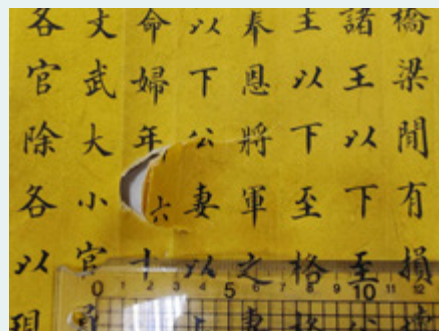 橋梁間有損
諸王以下至
主以下至格
奉恩將軍之妻
以下公妻以上
命婦年六十
文武大小官員
各官除各以現
0 1 2 3 4 5 6 7 8 9 10 11 12